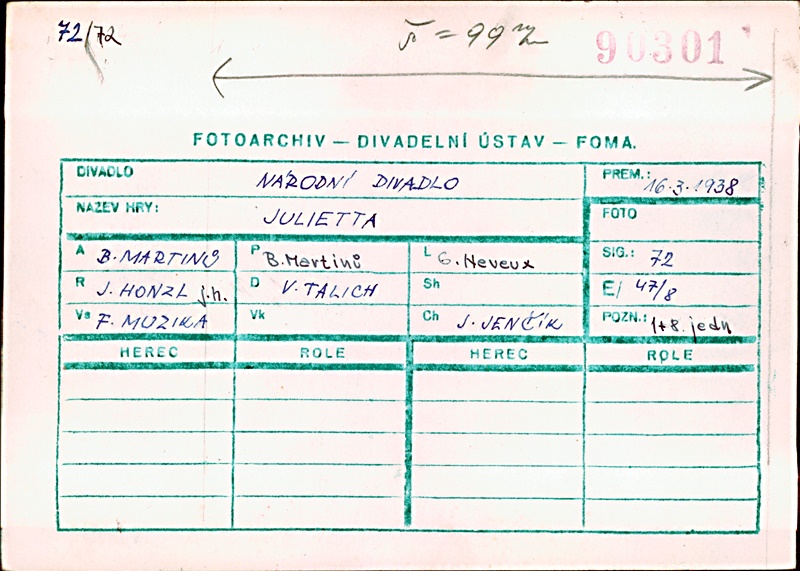 72/72
š = 99
90301
FOTOARCHIV — DIVADELNÍ ÚSTAV — FOMA.
DIVADLO NÁRODNÍ DIVADLO PREM.: 16.3.1938
NAZEV HRY: JULIETTA FOTO
A B. MARTINŮ P B. Martinů L G. Neveux SIG.: 72
R J. HONZL j.h. D V. TALICH Sh E/ 47/8
Vs F. MUZIKA Vk Ch J. JENČÍK POZN.: 1+8. jedn
HEREC ROLE HEREC ROLE